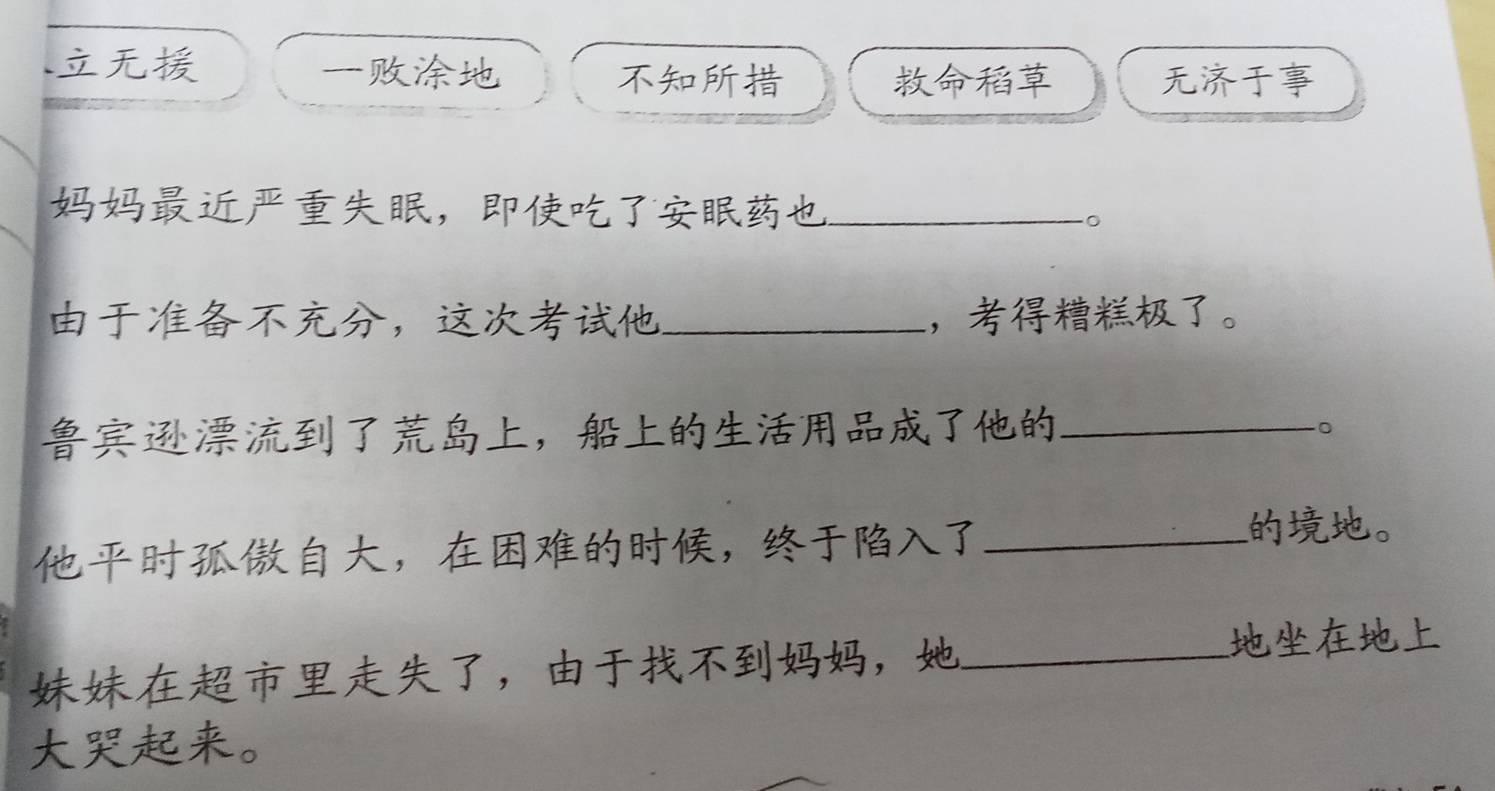 立无援 一败涂地 不知所措 救命稻草 无济于事
妈妈最近严重失眠，即使吃了安眠药也____________。
由于准备不充分，这次考试他____________，考得糟糕极了。
鲁宾逊漂流到了荒岛上，船上的生活用品成了他的____________。
他平时孤傲自大，在困难的时候，终于陷入了____________的境地。
妹妹在超市里走失了，由于找不到妈妈，她____________地坐在地上
大哭起来。